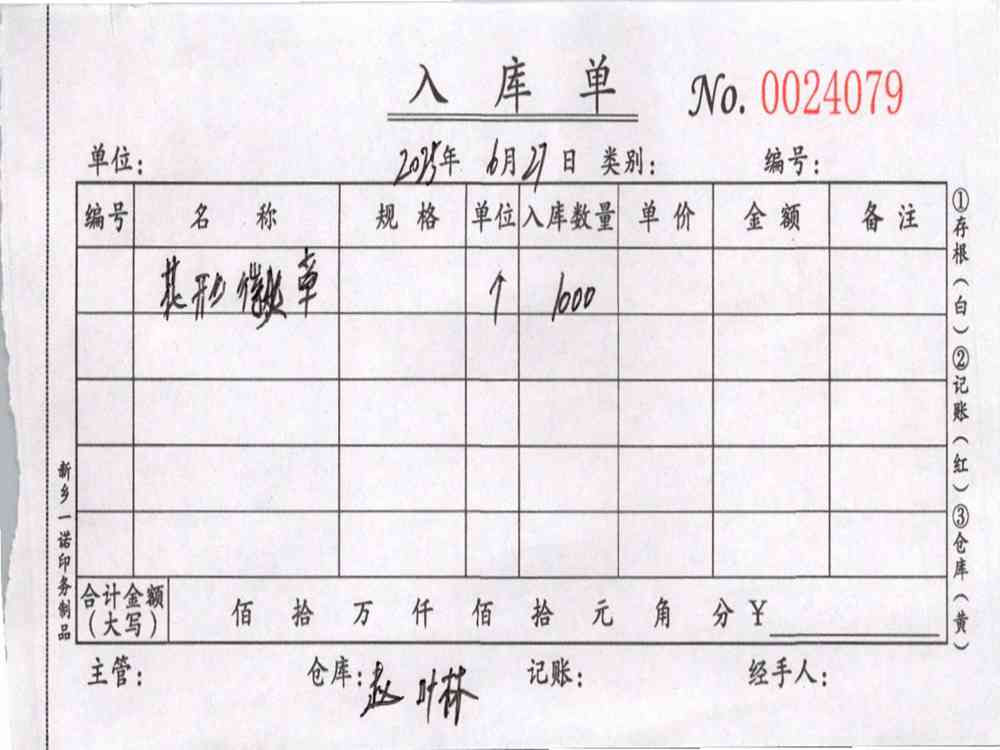 入库单
No. 0024079
单位: 2025年 6月27日 类别: 编号:
编号 名称 规格 单位 入库数量 单价 金额 备注
花形徽章 个 1000
合计金额(大写) 佰 拾 万 仟 佰 拾 元 角 分 ¥
主管: 仓库:赵叶林 记账: 经手人:
①存根(白) ②记账(红) ③仓库(黄)
新乡一诺印务制品